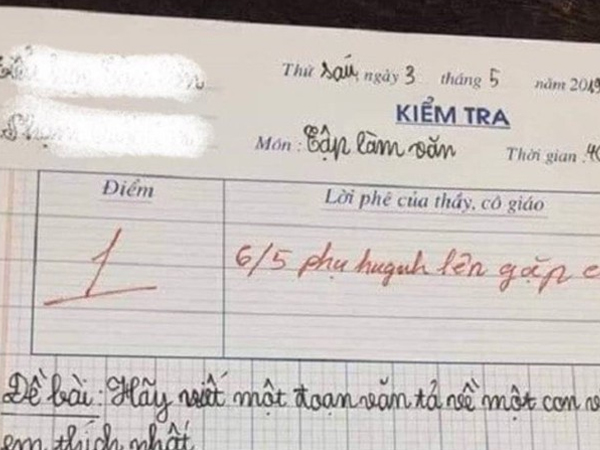 Thứ sáu, ngày 3 tháng 5 năm 2019
KIỂM TRA
Môn : Tập làm văn Thời gian : 40
Điểm
Lời phê của thầy, cô giáo
1
6/5 phụ huynh lên gặp
Đề bài : Hãy viết một đoạn văn tả về một con
em thích nhất